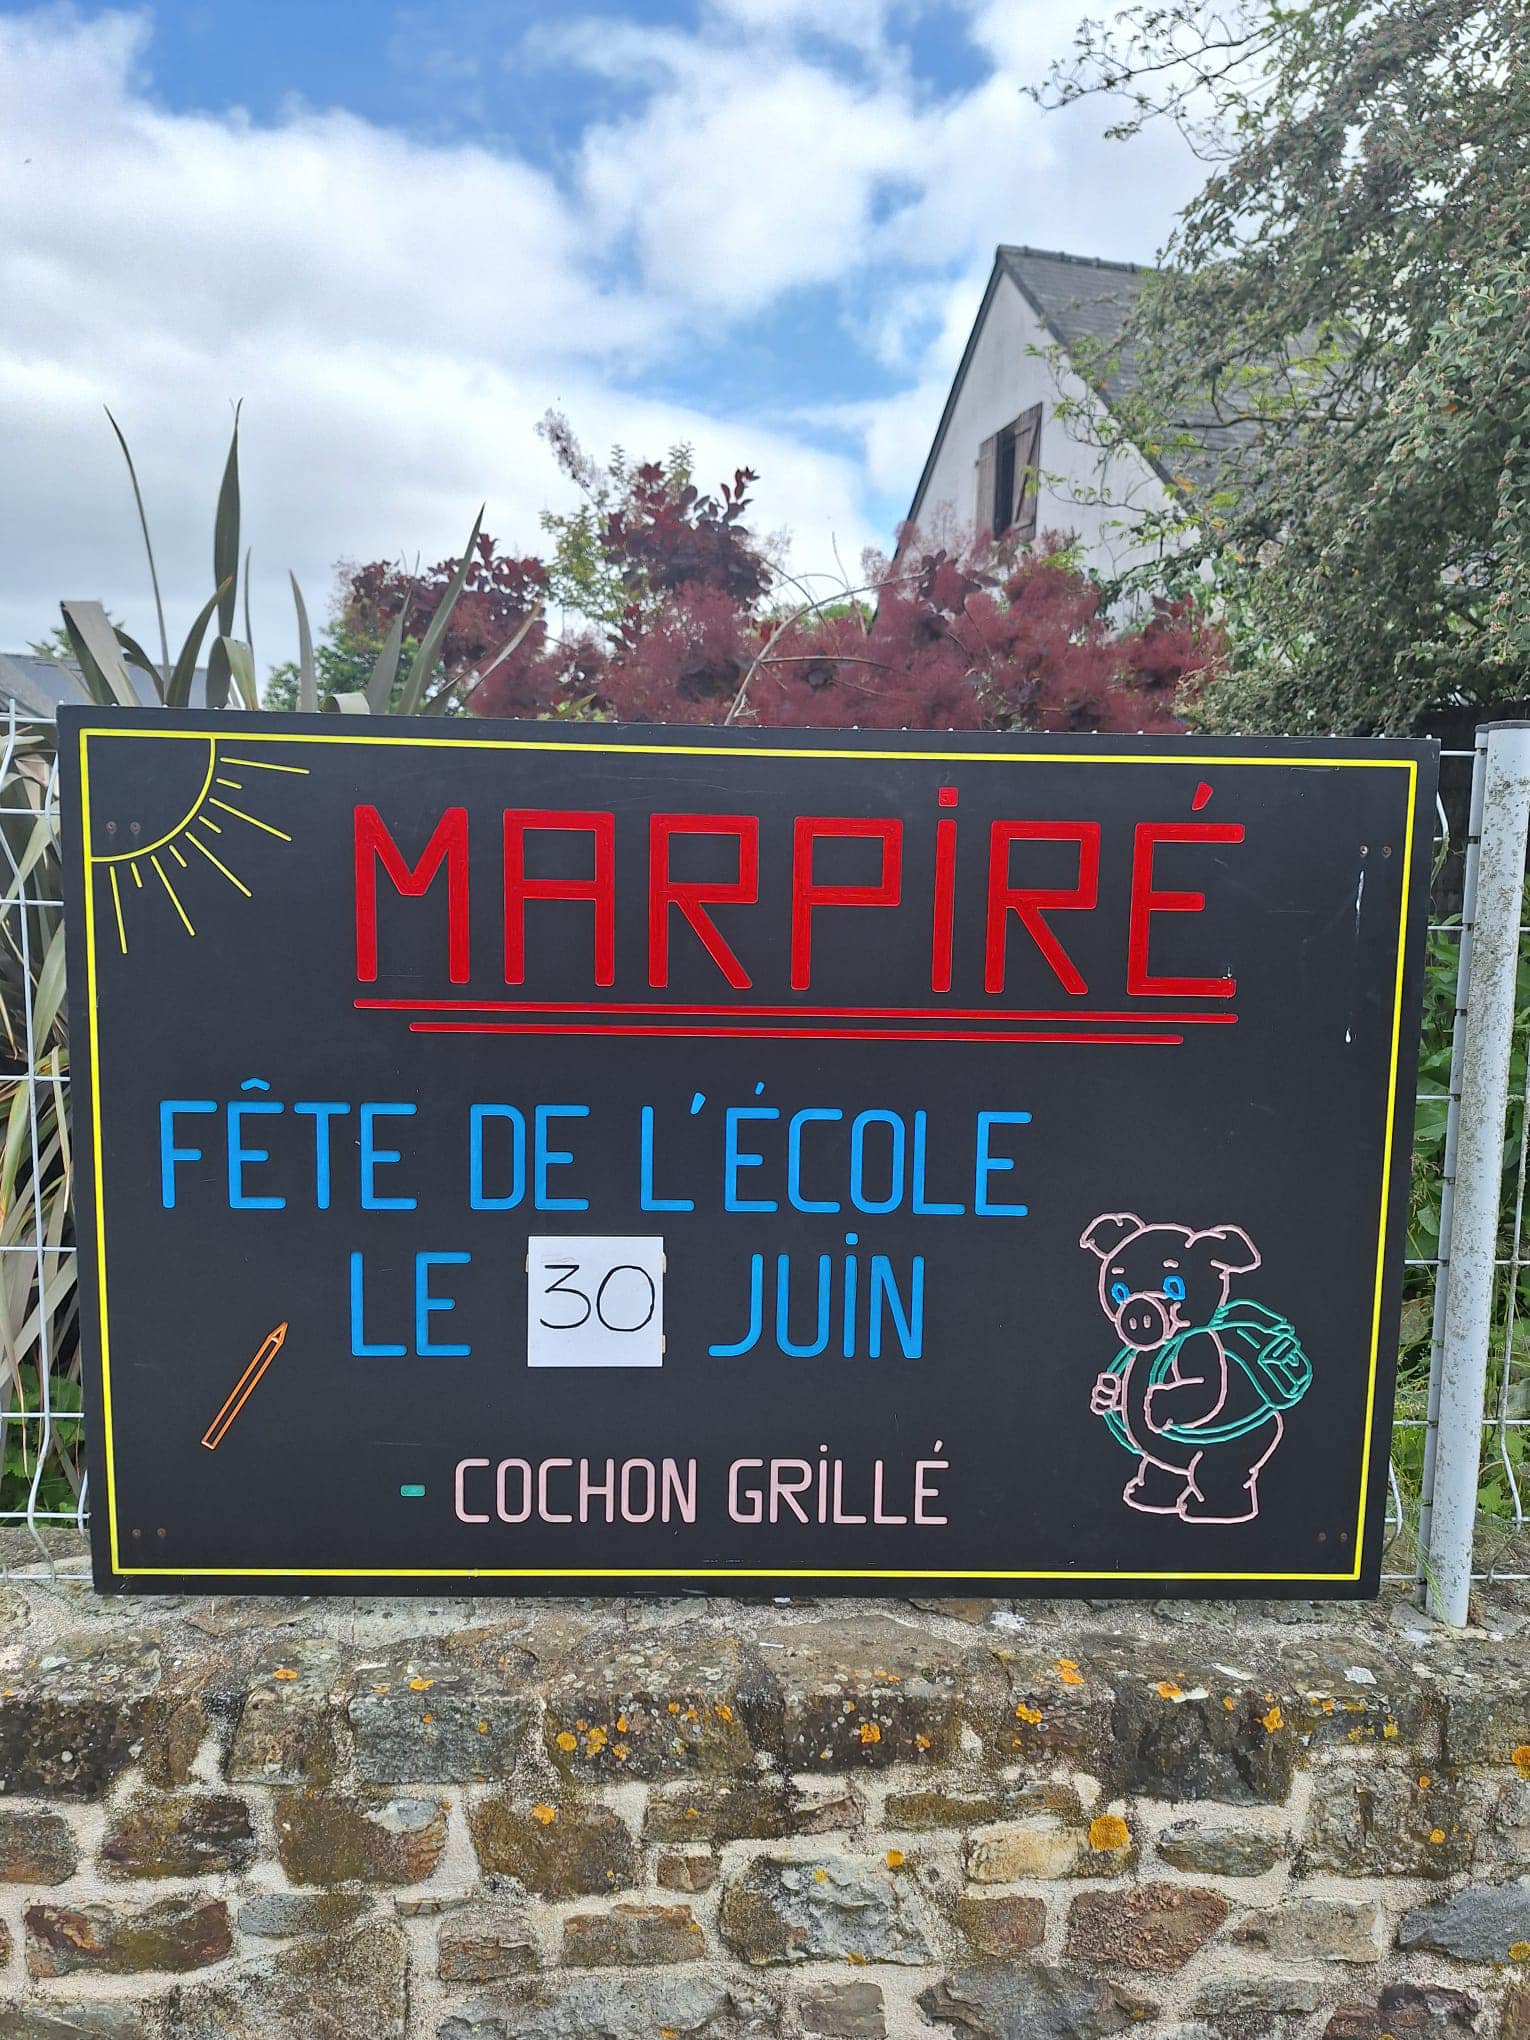 MARPIRÉ
FÊTE DE L'ÉCOLE
LE 30 JUIN
- COCHON GRILLÉ